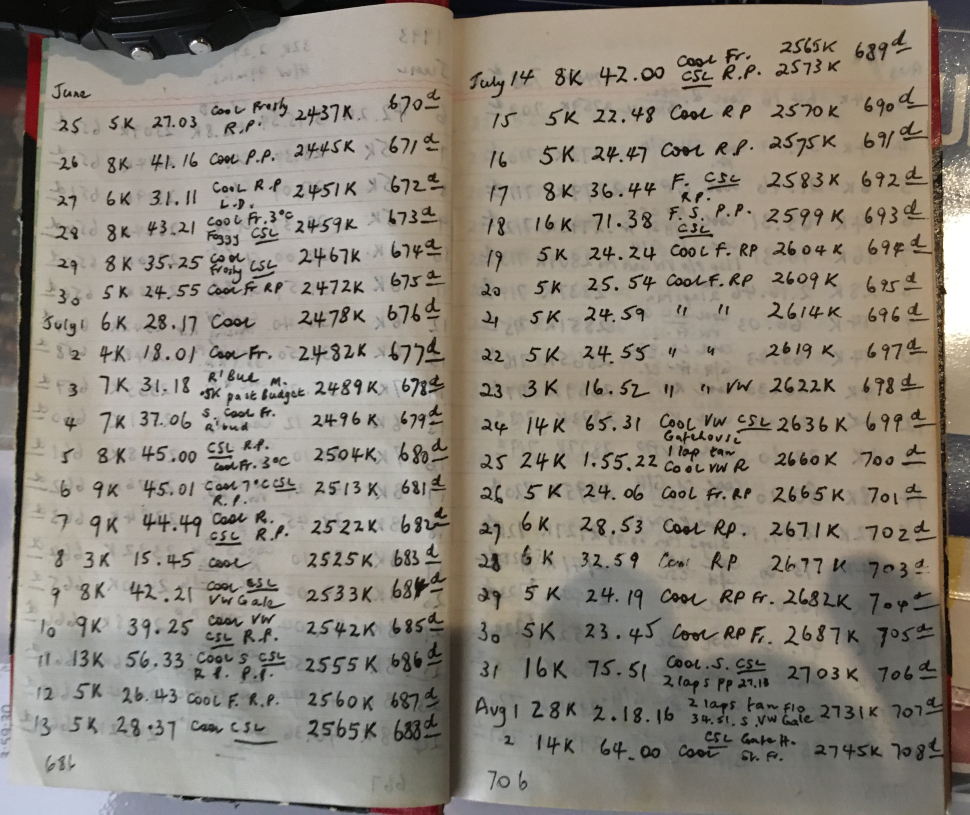 June
25 5K 27.03 Cool Frosty R.P. 2437K 670d
26 8K 41.16 Cool P.P. 2445K 671d
27 6K 31.11 Cool R.P L.D. 2451K 672d
28 8K 43.21 Cool Fr. 3°C Foggy CSL 2459K 673d
29 8K 35.25 Cool Frosty CSL 2467K 674d
30 5K 24.55 Cool Fr RP 2472K 675d
July 1 6K 28.17 Cool 2478K 676d
2 4K 18.01 Cool Fr. 2482K 677d
3 7K 31.18 R'Bud M. 5K part Budget 2489K 678d
4 7K 37.06 S. Cool Fr. R'bud 2496K 679d
5 8K 45.00 CSL R.P. Cool Fr. 3°C 2504K 680d
6 9K 45.01 Cool 7°C CSL R.P. 2513K 681d
7 9K 44.49 Cool R. CSL R.P. 2522K 682d
8 3K 15.45 Cool 2525K 683d
9 8K 42.21 Cool CSL VW Gale 2533K 684d
10 9K 39.25 Cool VW CSL R.P. 2542K 685d
11 13K 56.33 Cool S CSL R.P. P.P. 2555K 686d
12 5K 26.43 Cool F. R.P. 2560K 687d
13 5K 28.37 Cool CSL 2565K 688d
686
July 14 8K 42.00 Cool Fr. CSL R.P. 2565K 2573K 689d
15 5K 22.48 Cool RP 2570K 690d
16 5K 24.47 Cool R.P. 2575K 691d
17 8K 36.44 F. CSL R.P. 2583K 692d
18 16K 71.38 F. S. P.P. CSL 2599K 693d
19 5K 24.24 Cool F. RP 2604K 694d
20 5K 25.54 Cool F. RP 2609K 695d
21 5K 24.59 " " 2614K 696d
22 5K 24.55 " " 2619K 697d
23 3K 16.52 " " VW 2622K 698d
24 14K 65.31 Cool VW CSL 2636K 699d
25 24K 1.55.22 1 lap tan Cool VW R 2660K 700d
26 5K 24.06 Cool Fr. RP 2665K 701d
27 6K 28.53 Cool RP. 2671K 702d
28 6K 32.59 Cool RP 2677K 703d
29 5K 24.19 Cool RP Fr. 2682K 704d
30 5K 23.45 Cool RP Fr. 2687K 705d
31 16K 75.51 Cool. S. CSL 2 laps PP 27.18 2703K 706d
Aug 1 28K 2.18.16 2 laps tan Flo 34.51. S VW Gale 2731K 707d
2 14K 64.00 Cool CSL Gate H. Fr. 2745K 708d
706